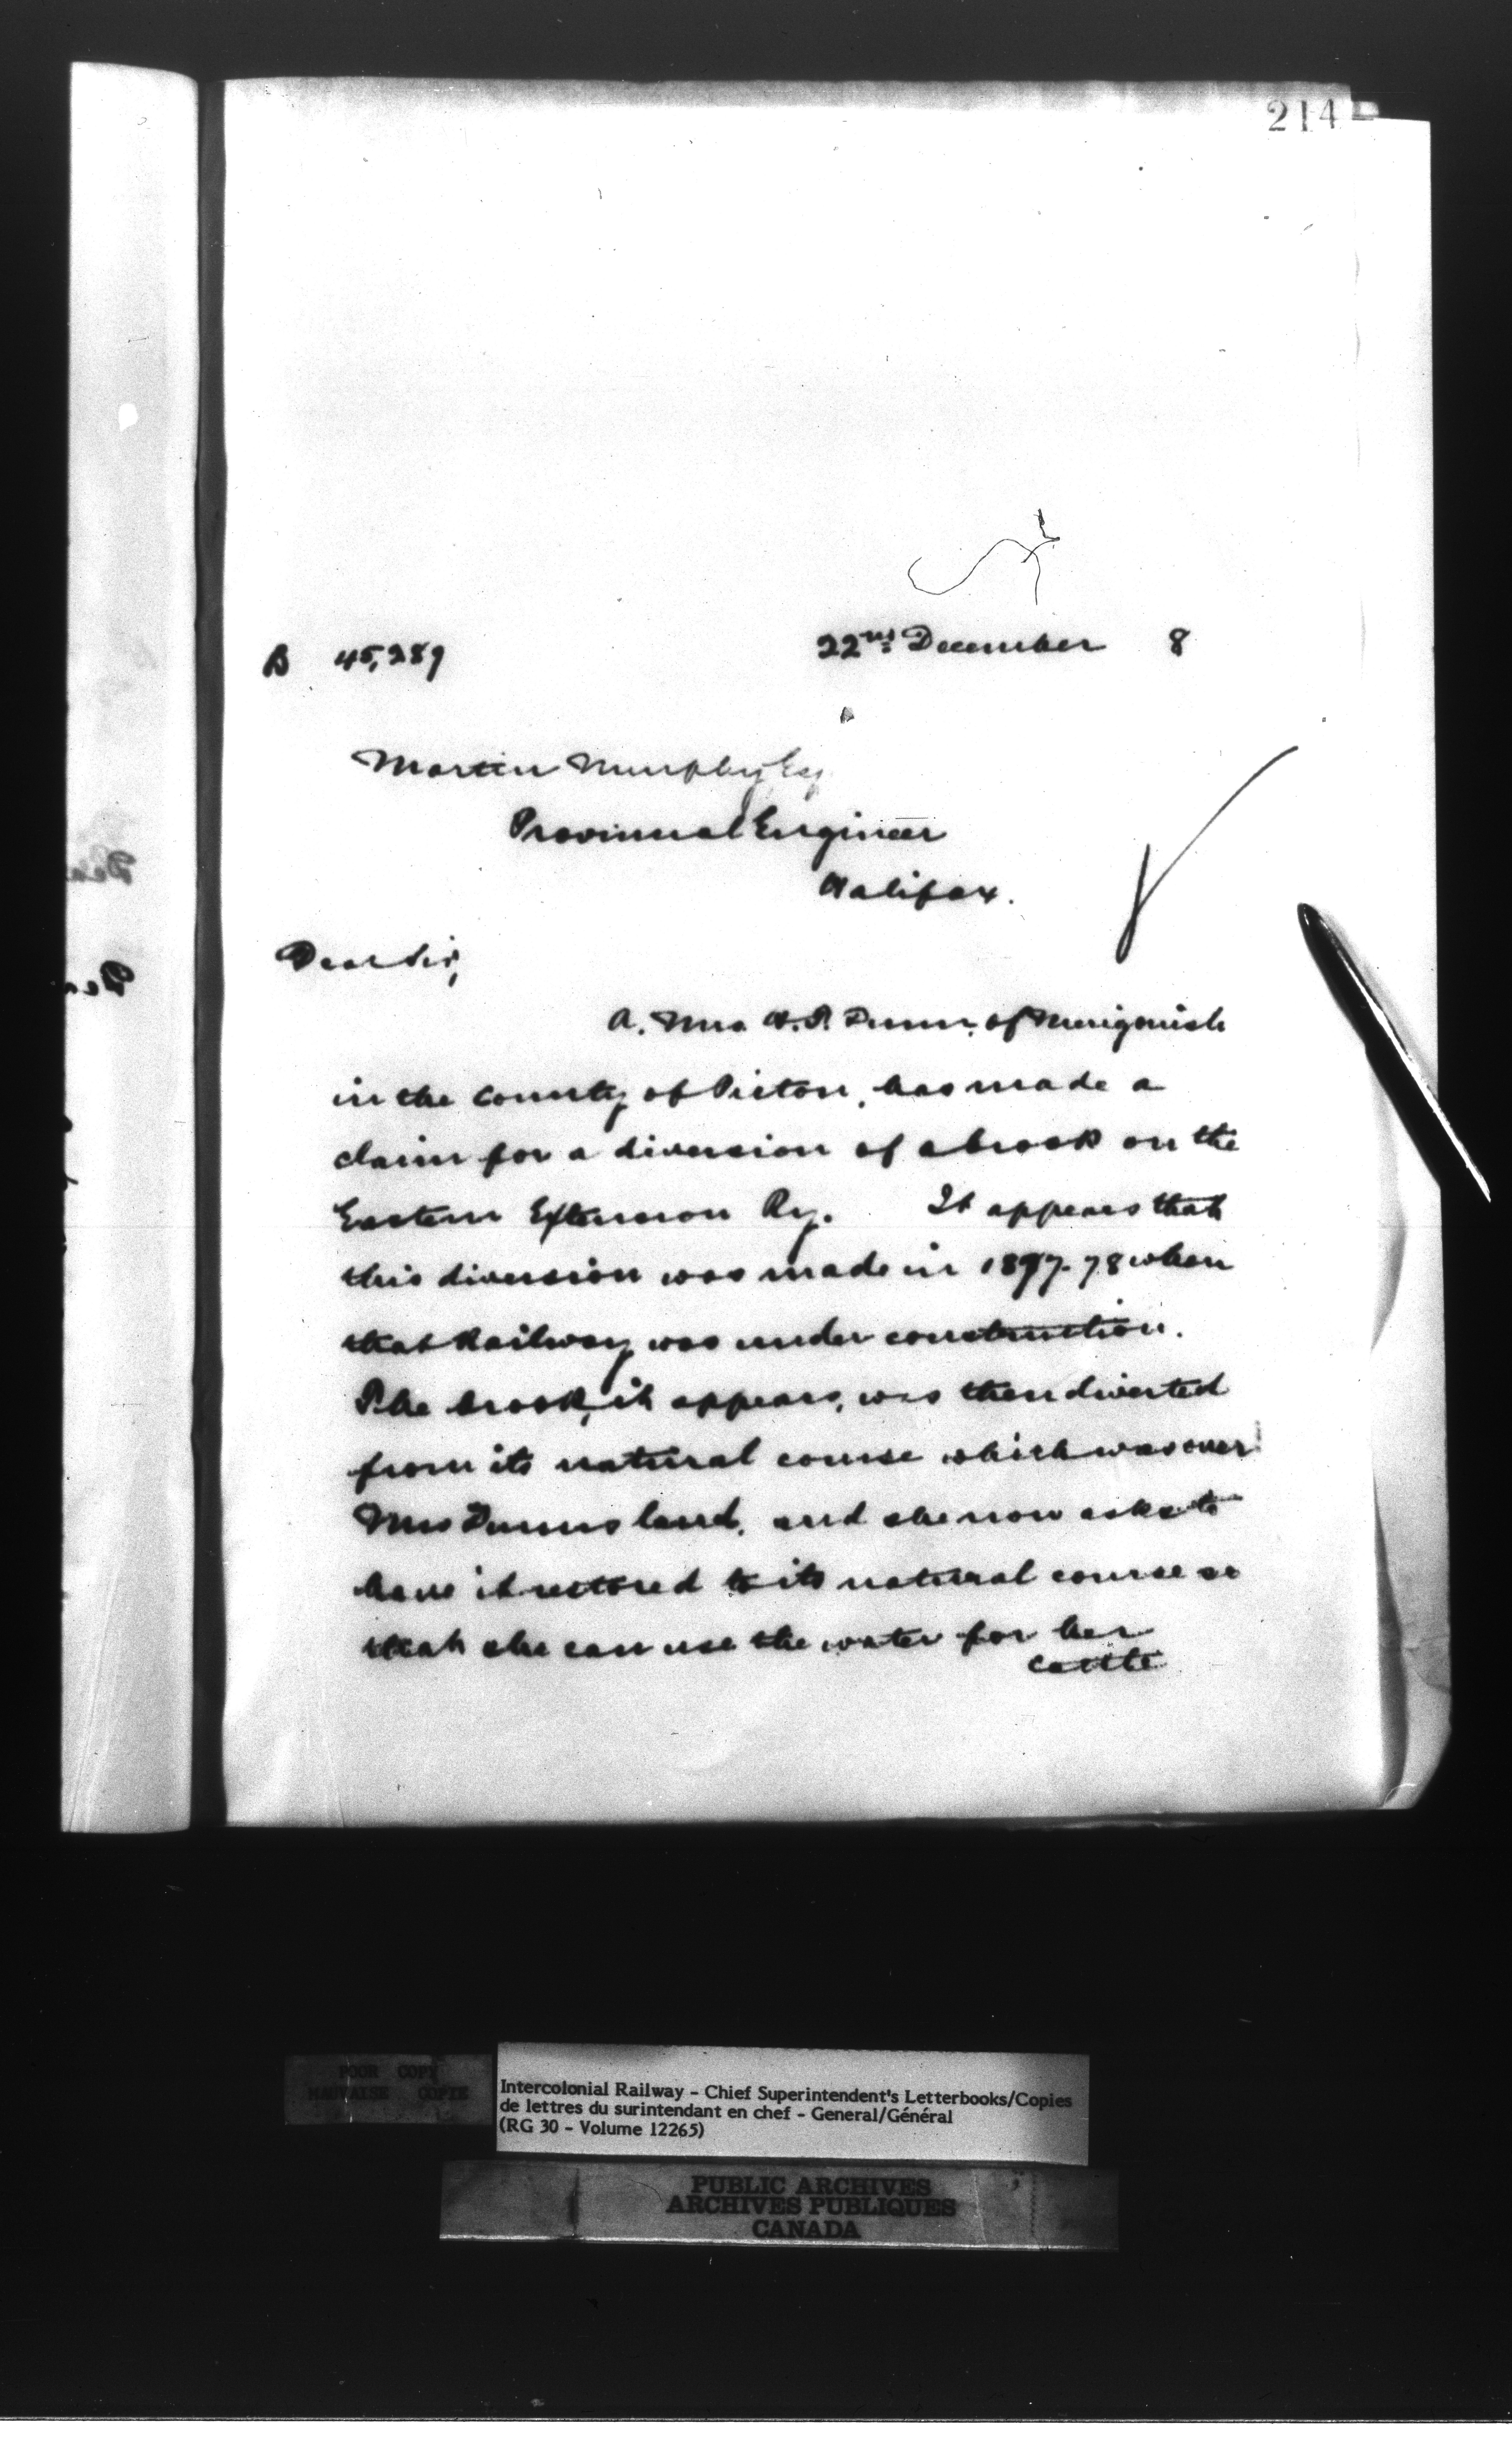 214
B 45,289 22nd December 8
Martin Murphy, Esq
Provincial Engineer
Halifax.
Dear Sir,
A. Mrs Dunn, of Merigonish
in the County of Pictou, has made a
claim for a diversion of a brook on the
Eastern Extension Ry. It appears that
this diversion was made in 1877-78 when
that Railway was under construction.
The brook, it appears, was then diverted
from its natural course which was over
Mrs Dunns land, and she now asks to
have it restored to its natural course so
that she can use the water for her
cattle
POOR COPY
MAUVAISE COPIE
Intercolonial Railway - Chief Superintendent's Letterbooks/Copies
de lettres du surintendant en chef - General/Général
(RG 30 - Volume 12265)
PUBLIC ARCHIVES
ARCHIVES PUBLIQUES
CANADA